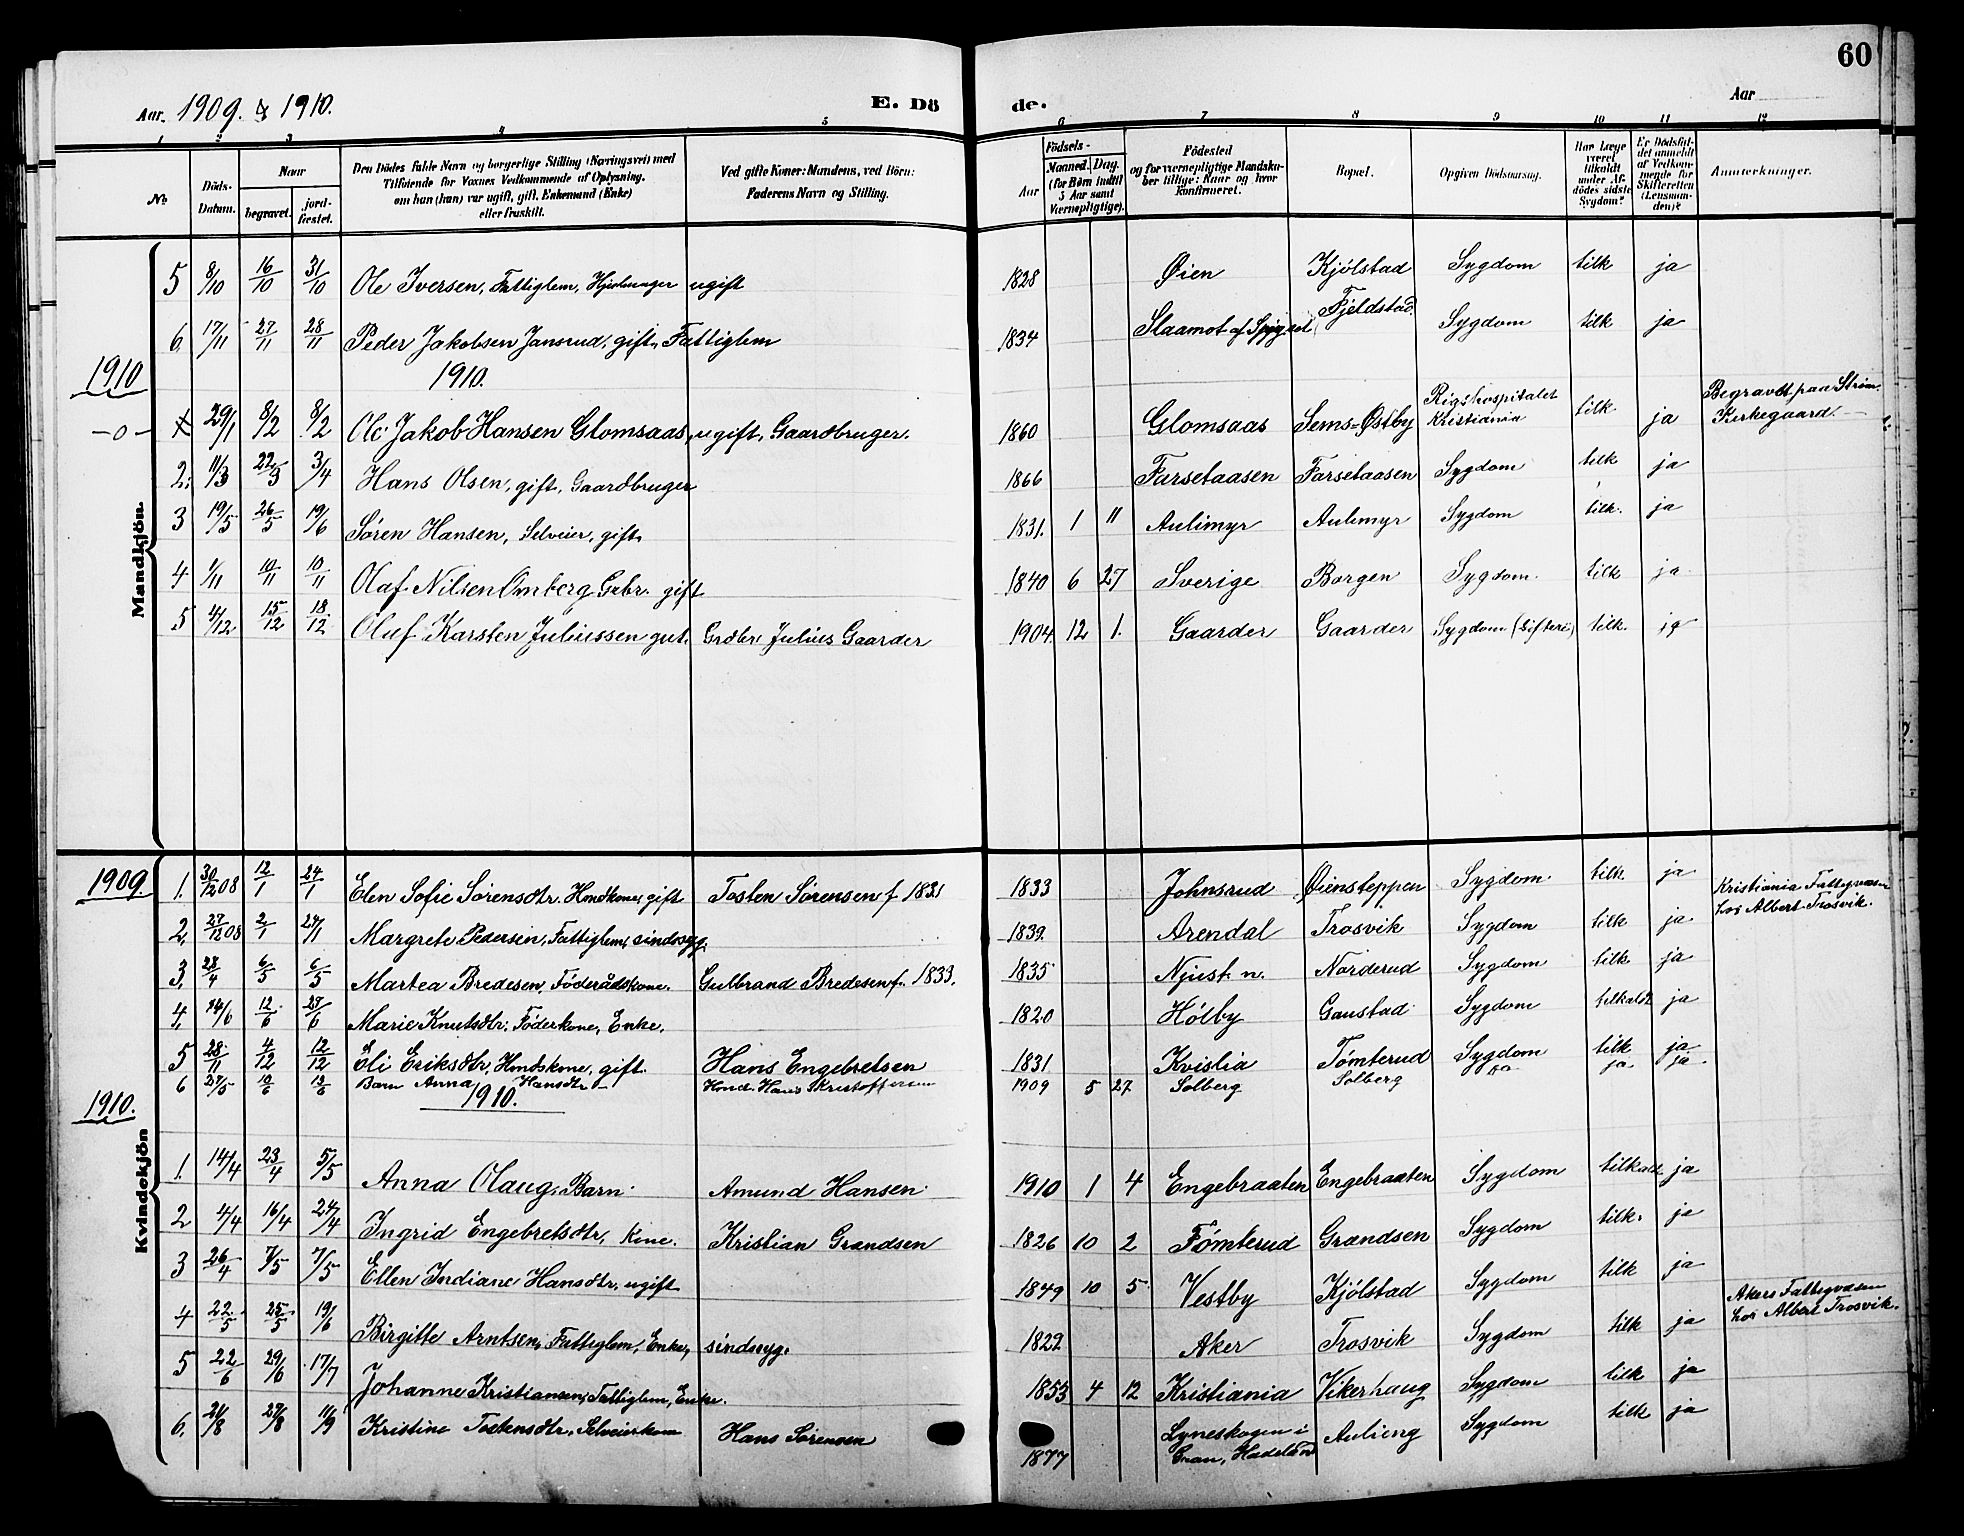 60
Aar. 1909. & 1910. E. Dö de. Aar
1 2 3 4 5 6 7 8 9 10 11 12
№ Döds-Datum. Naar begravet. jord-fæstet. Den Dödes fulde Navn og borgerlige Stilling (Næringsvei) med Tilföiende for Voxnes Vedkommende af Oplysning, om han (hun) var ugift, gift, Enkemand (Enke) eller fraskilt. Ved gifte Koner: Mandens, ved Börn: Faderens Navn og Stilling. Födsels- Aar Maaned. Dag. (for Börn indtil 5 Aar samt Værnepligtige). Födested og for værnepligtige Mandskaber tillige: Naar og hvor konfirmeret. Bopæl. Opgiven Dödsaarsag. Har Læge været tilkaldt under Afdödes sidste Sygdom? Er Dödsfaldet anmeldt af Vedkommende for Skifteretten (Lensmanden)? Anmerkninger.
Mandkjön.
5 8/10 16/10 31/10 Ole Iversen, Fattiglem, ugift 1828 Øien Kjölstad Sygdom tilk ja
6. 17/11 27/11 28/11 Peder Jakobsen Jansrud, gift, Fattiglem 1834 Slaamot af Fjeldstad Sygdom tilk ja
1910 1910.
29/1 8/2 8/2 Ole Jakob Hansen Glomsaas, ugift, Gaardbruger. 1860 Glomsaas Sems-Østby Rigshospitalet Kristiania tilk ja Begravet paa Ström Kirkegaard.
2. 11/3 22/3 3/4 Hans Olsen, gift, Gaardbruger 1866 Farsetaasen Farsetaasen Sygdom tilk ja
3 19/5 26/5 19/6 Sören Hansen, Selveier, gift 1831. 1 11 Aulimyr Aulimyr Sygdom tilk. ja
4 1/11 10/11 10/11 Olaf Nilsen Omberg Gabr. gift 1840 6 27 Sverige Borgen Sygdom. tilk ja
5 4/12. 15/12 18/12 Oluf Karsten Juliussen gut. Grdbr. Julius Gaarder 1904. 12 1. Gaarder Gaarder Sygdom (difteri) tilk. ja
Kvindekjön
1909. 1. 30/12 08 12/1 24/1 Elen Sofie Sörensdtr. Hmdkone, gift Tosten Sörensen f 1831 1833 Johnsrud Øiensteppen Sygdom tilk. ja
2. 27/12 08 2/1 24/1 Margrete Pedersen, Fattiglem, sindssyg. 1839. Arendal Trosvik Sygdom tilk ja Kristiania Fattigvæsen hos Albert Trosvik.
3. 28/4 6/5 6/5 Martea Bredesen, Föderådskone. Gulbrand Bredesen f. 1833. 1835 Njust. n. Norderud Sygdom tilk ja
4. 14/6 12/6 27/6 Marie Knutsdtr. Föderkone, Enke. 1820 Hölby Gaustad Sygdom tilkaldt ja
5 28/11 4/12 12/12 Eli Eriksdtr, Hmdskone, gift. Hans Engebretsen 1831 Kvistia Tömterud Sygdom tilk ja
6 27/5 10/6 13/6 Barn Anna Hansdtr Hmd. Hans Kristoffersen 1909 5 27. Solberg Solberg ja ja
1910. 1910.
1. 14/4 23/4 5/5 Anna Olaug, Barn. Amund Hansen. 1910 1 4 Engebraaten Engebraaten Sygdom tilkaldt ja
2 4/4 16/4 24/4 Ingrid Engebretsdtr, Kone. Kristian Grandsen 1826 10 2 Tömterud Grandsen Sygdom tilk. ja
3 26/4 7/5 7/5 Ellen Indiane Hansdtr. ugift 1849 10 5. Vestby Kjölstad Sygdom tilk ja
4 22/5 25/5 19/6 Birgitte Arntsen, Fattiglem, Enke, sindssyg. 1822 Aker Trosvik Sygdom tilk ja Akers Fattigvæsen hos Albert Trosvik.
5 22/6 29/6 17/7 Johanne Kristiansen, Fattiglem, Enke. 1853 4 12 Kristiania Vikerhaug Sygdom tilk ja
6. 21/8 27/8 11/9 Kristine Tostensdtr. Selveierkone Hans Sörensen 1877 Lyneskogen i Gran, Hadeland Aulieng Sygdom tilk ja